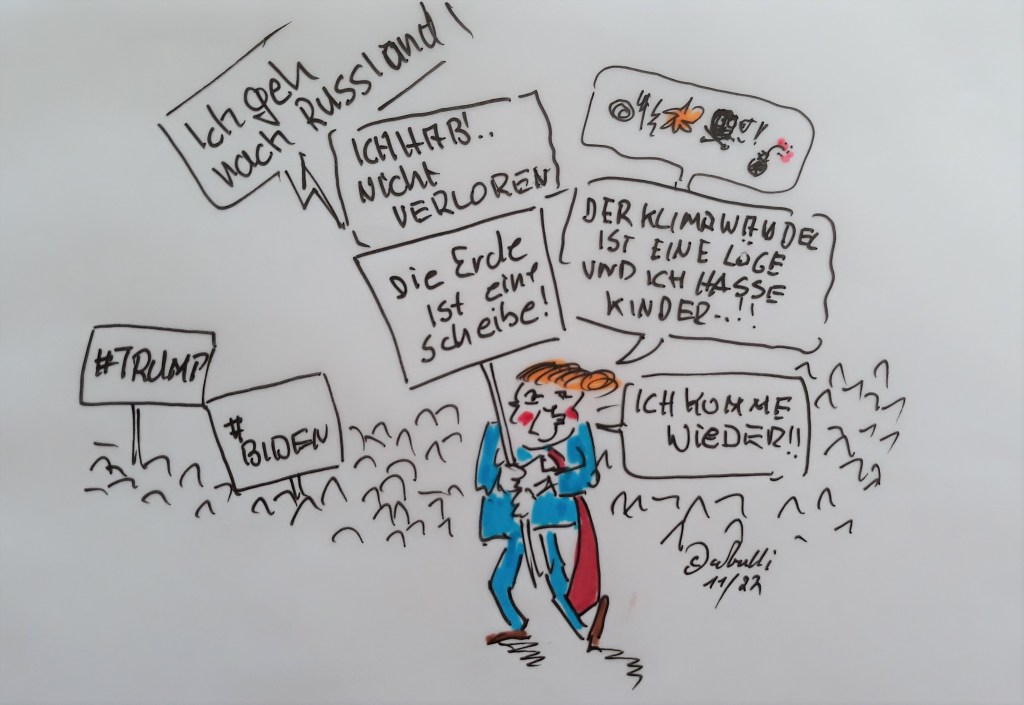 Ich geh
nach Russland
ICH HAB'..
Nicht
VERLOREN
DER KLIMAWANDEL
IST EINE LÜGE
UND ICH HASSE
KINDER..!!
Die Erde
ist eine
Scheibe!
#TRUMP
#
BIDEN
ICH KOMME
WIEDER!!
11/22